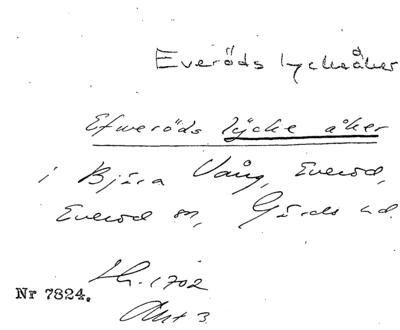 Everöds lyckeåker
Efweröds lÿcke åker
i Bjära Vång, Everöd,
Everöd sn, Gärds hd.
Lh. 1702
Nr 7824.
Akt 3